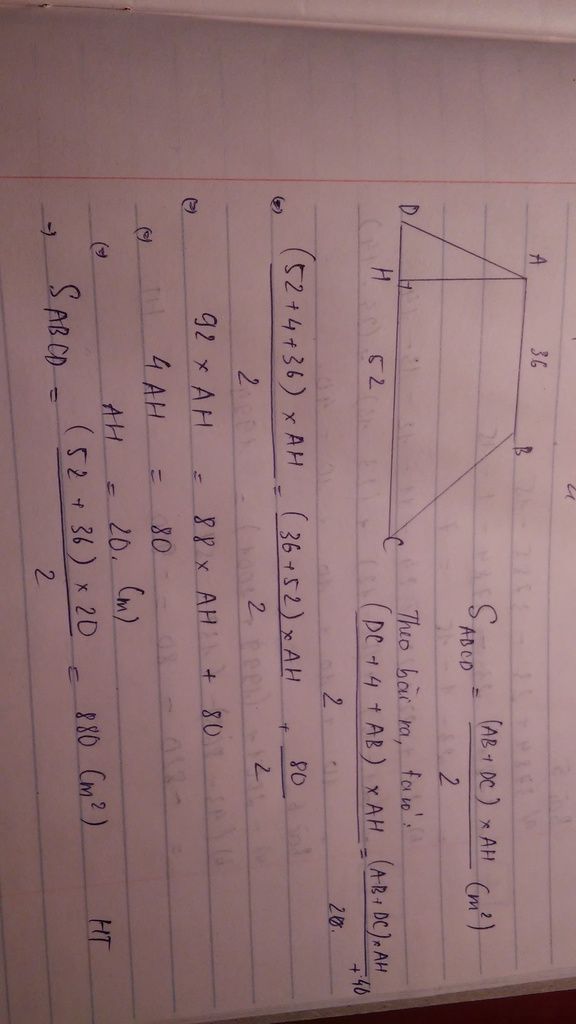 A 36 B
D H 52 C
S ABCD = (AB + DC) × AH / 2 (m²)
Theo bài ra, ta có:
(DC + 4 + AB) × AH / 2 = (AB + DC) × AH / 2 + 40
(=) (52 + 4 + 36) × AH / 2 = (36 + 52) × AH / 2 + 80 / 2
(=) 92 × AH = 88 × AH + 80
(=) 4AH = 80
(=) AH = 20. (m)
=) S ABCD = (52 + 36) × 20 / 2 = 880 (m²)
HT